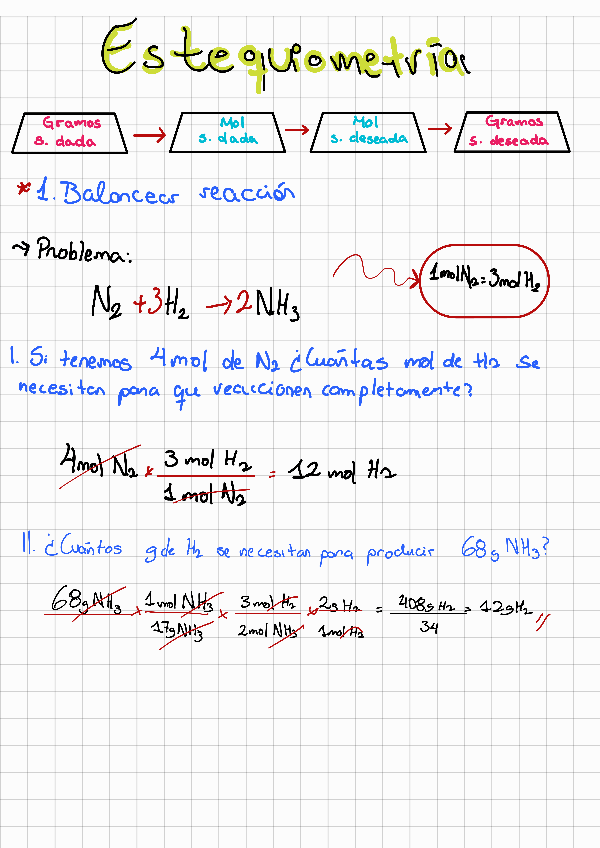 Estequiometría
Gramos s. dada → Mol s. dada → Mol s. deseada → Gramos s. deseada
* 1. Balancear reacción
→ Problema:
1 mol N₂ = 3 mol H₂
N₂ + 3H₂ → 2NH₃
I. Si tenemos 4 mol de N₂ ¿Cuántas mol de H₂ se
necesitan para que reaccionen completamente?
4 mol N₂ * 3 mol H₂ / 1 mol N₂ = 12 mol H₂
II. ¿Cuántos g de H₂ se necesitan para producir 68g NH₃?
68g NH₃ x 1 mol NH₃ / 17g NH₃ x 3 mol H₂ / 2 mol NH₃ x 2g H₂ / 1 mol H₂ = 408g H₂ / 34 = 12g H₂ //